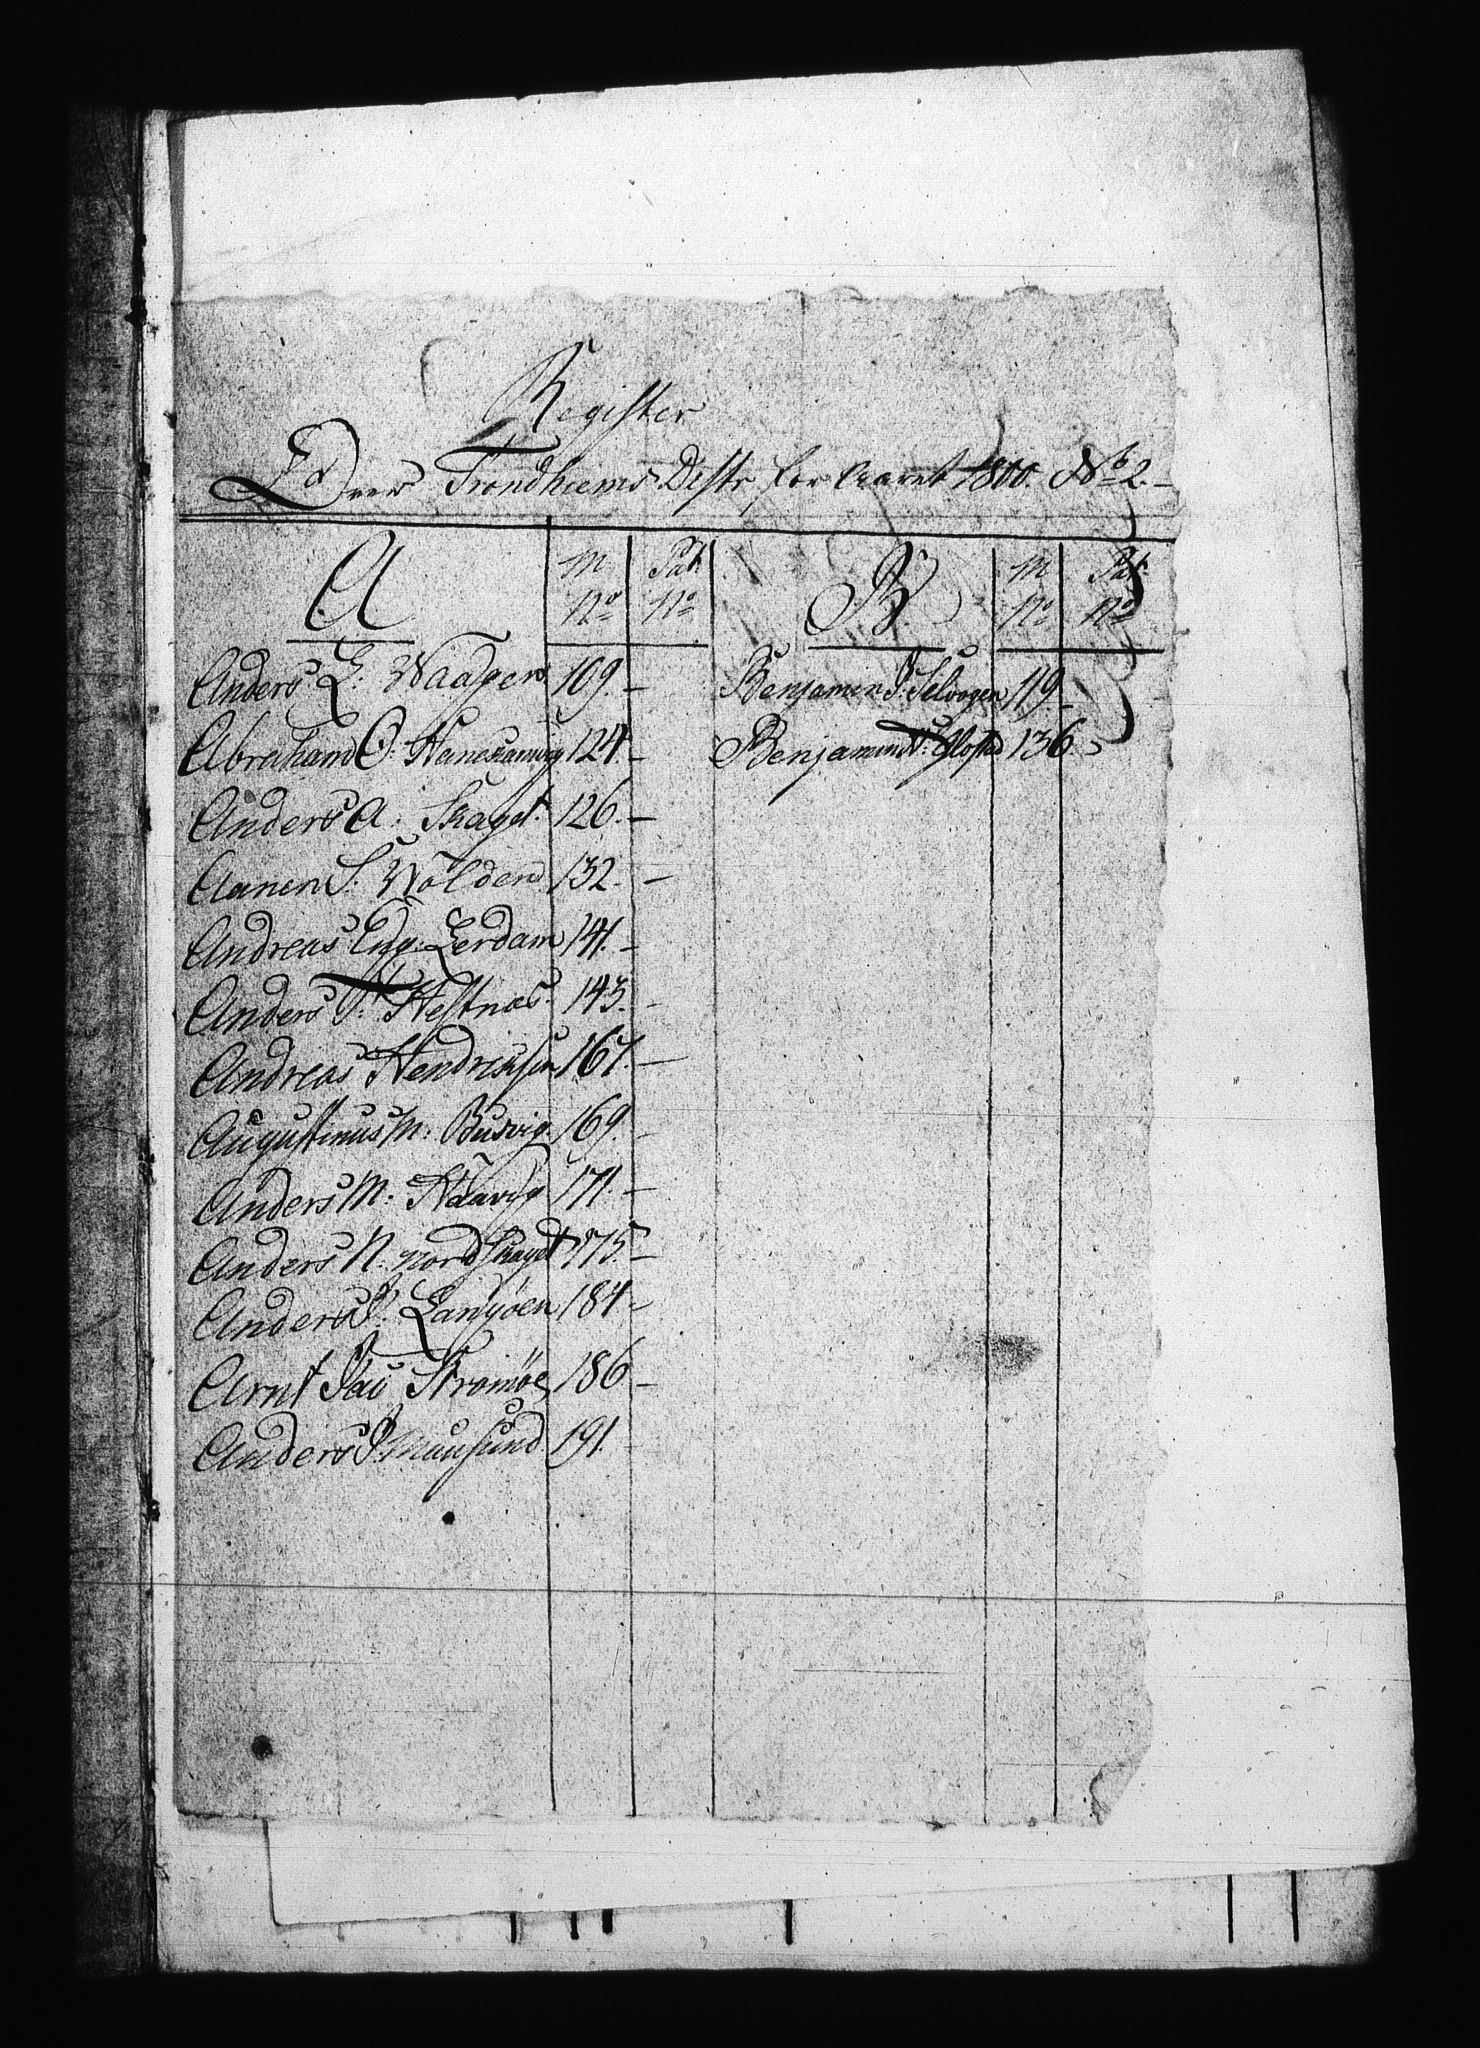 Register
Over Trondhiems Distr for Aaret 1800. No 2.
A
M No
Pat: No
B.
M No
Pat: No
Anders L: Waagen 109. –
Abraham O: 124 –
Anders A: Skaget. 126. –
Aanen S: Wolden 132. –
Andreas Eng: Lerdam 141. –
Anders P: Hestnæs. 143. –
Andreas Hendrichsen 167. –
Augustinus M: Busvig. 169. –
Anders M: Kaavig 171. –
Anders N: Nordskaget 175. –
Anders J: Langøen 184 –
Arnt Jac Strømøe 186 –
Anders J: Mausund 191. –
Benjamin J: Selvogen 119 –
Benjamin 136 –